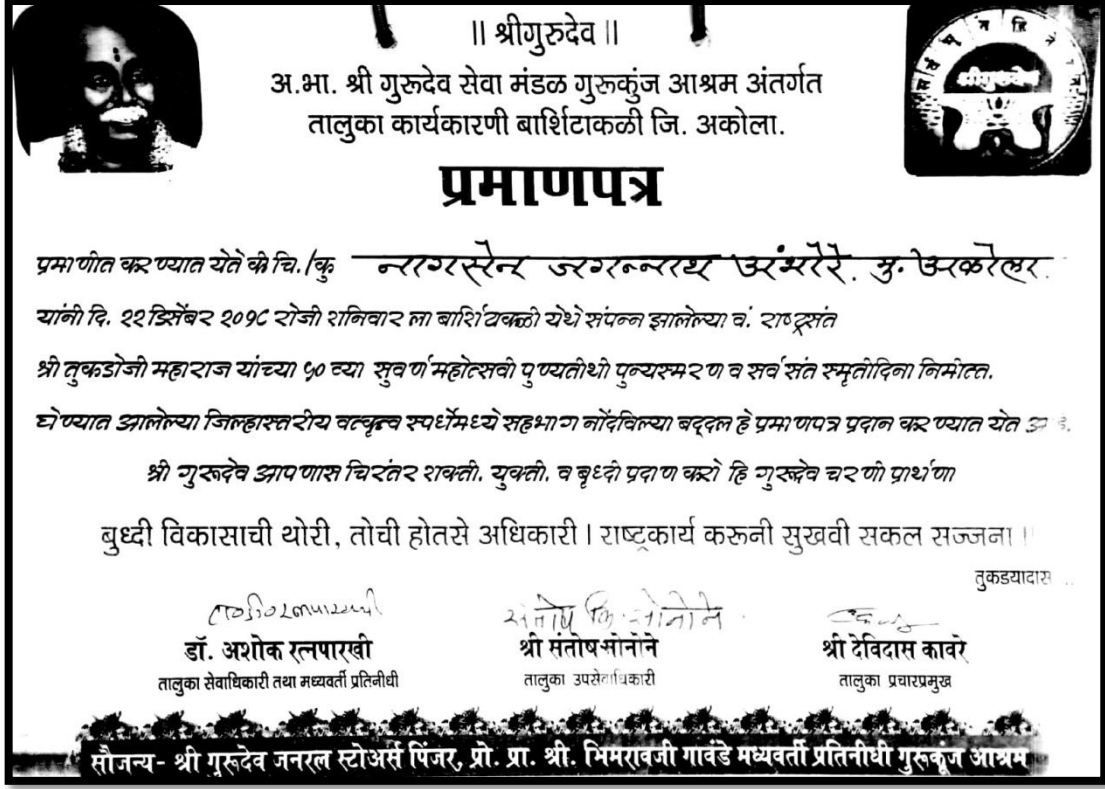 || श्रीगुरुदेव ||
अ.भा. श्री गुरूदेव सेवा मंडळ गुरूकुंज आश्रम अंतर्गत
तालुका कार्यकारणी बार्शिटाकळी जि. अकोला.
प्रमाणपत्र
प्रमाणीत करण्यात येते की चि./कु नागसेन जगन्नाथ अंभोरे. मु. अकोला.
यांनी दि. २२ डिसेंबर २०१८ रोजी शनिवार ला बार्शिटाकळी येथे संपन्न झालेल्या वं. राष्ट्रसंत
श्री तुकडोजी महाराज यांच्या ५० व्या सुवर्ण महोत्सवी पुण्यतीथी पुन्यस्मरण व सर्व संत स्मृतीदिना निमीत्त.
घेण्यात आलेल्या जिल्हास्तरीय वत्कृत्व स्पर्धेमध्ये सहभाग नोंदविल्या बद्दल हे प्रमाणपत्र प्रदान करण्यात येत आहे.
श्री गुरूदेव आपणास चिरंतर शक्ती. युक्ती. व बृध्दी प्रदाण करो हि गुरूदेव चरणी प्रार्थणा
बुध्दी विकासाची थोरी, तोची होतसे अधिकारी । राष्ट्रकार्य करूनी सुखवी सकल सज्जना ॥
तुकडयादास
संतोष कि. सोनोने
डॉ. अशोक रत्नपारखी श्री संतोष सोनोने श्री देविदास कावरे
तालुका सेवाधिकारी तथा मध्यवर्ती प्रतिनीधी तालुका उपसेवाधिकारी तालुका प्रचारप्रमुख
सौजन्य- श्री गुरूदेव जनरल स्टोअर्स पिंजर, प्रो. प्रा. श्री. भिमरावजी गावंडे मध्यवर्ती प्रतिनीधी गुरूकूंज आश्रम